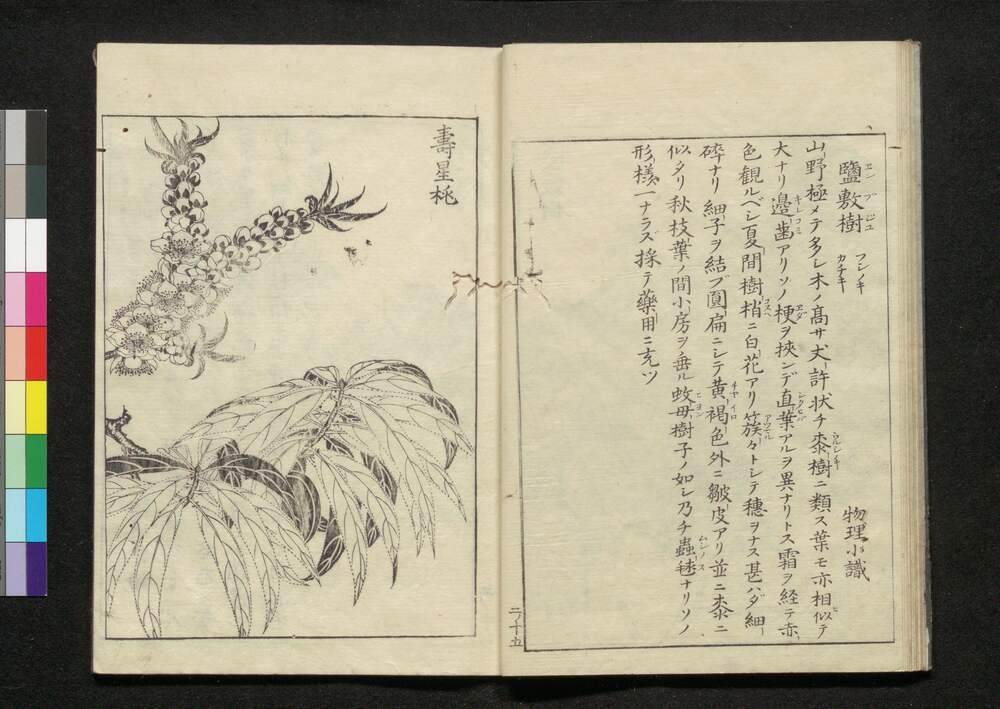 鹽敷樹 フシノキ カチノキ 物理小識
山野極メテ多シ木ノ髙サ丈許状チ桼樹ニ類ス葉モ亦相似テ
大ナリ邉歯アリソノ梗ヲ挾ンデ直葉アルヲ異ナリトス霜ヲ経テ赤
色観ルベシ夏間樹梢ニ白花アリ簇々トシテ穗ヲナス甚ハダ細
碎ナリ細子ヲ結ブ圓扁ニシテ黄褐色外ニ皺皮アリ並ニ桼ニ
似タリ秋枝葉ノ間小房ヲ垂ル蚊母樹子ノ如シ乃チ蟲毬ナリソノ
形様一ナラズ採テ藥用ニ充ツ
二ノ十五
壽星桃